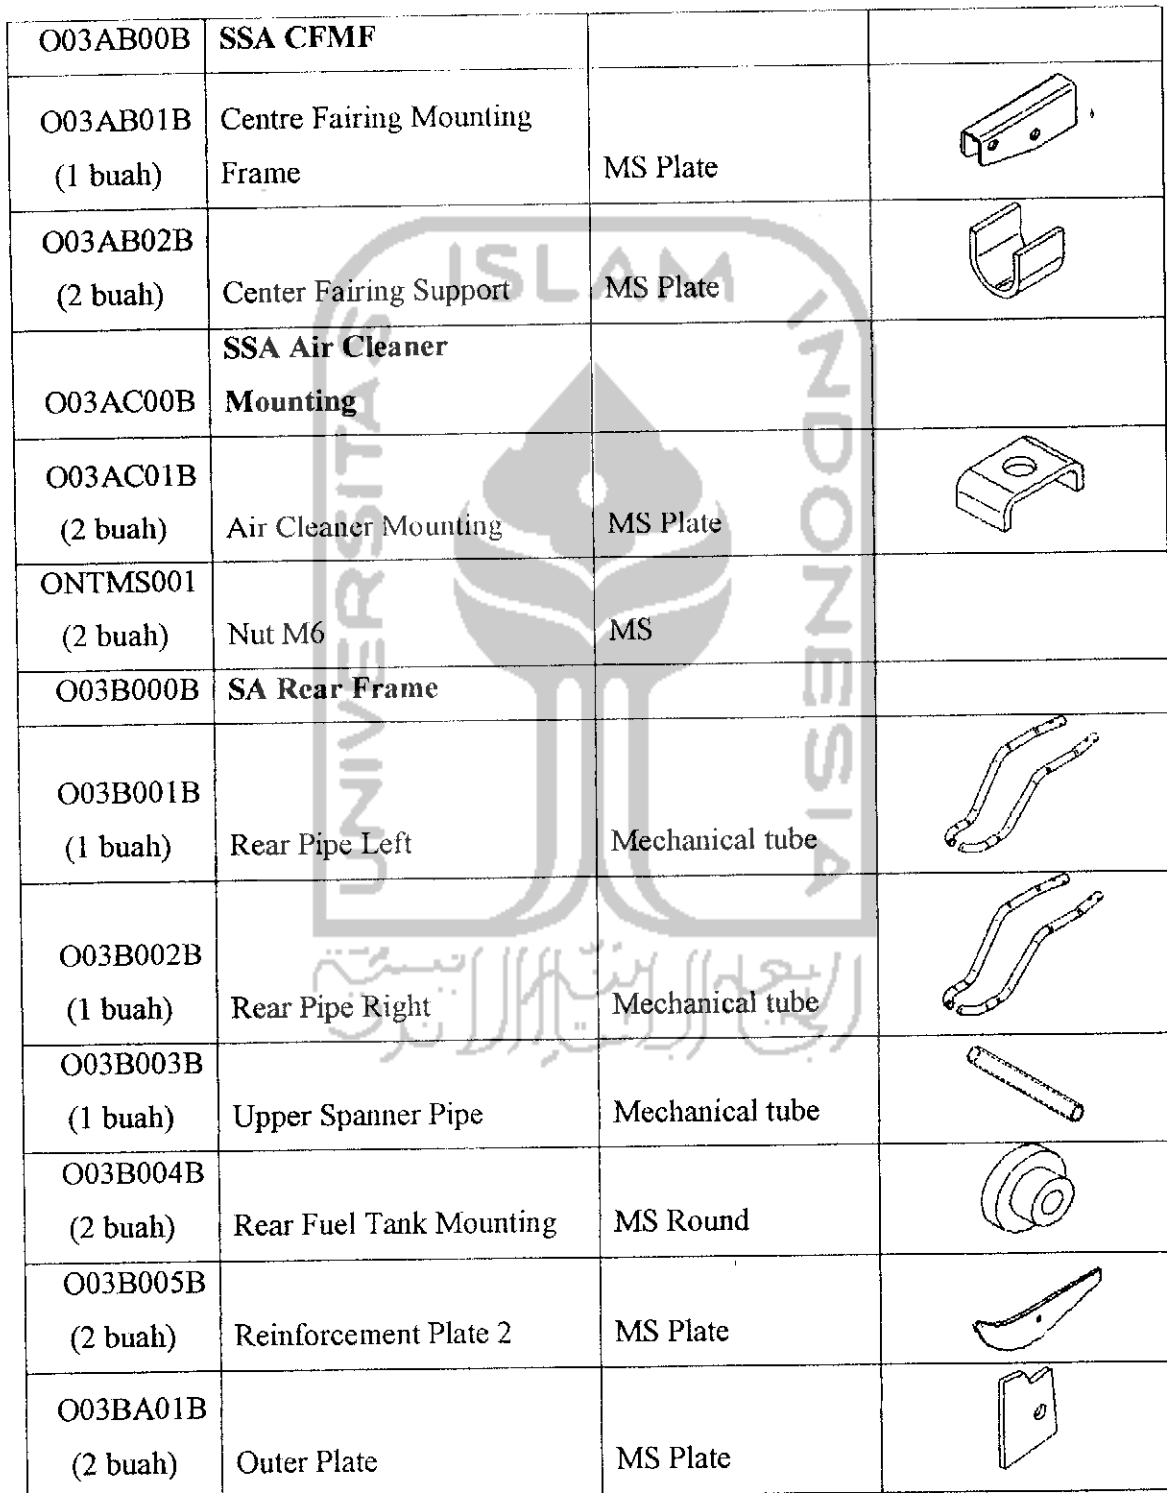 O03AB00B SSA CFMF
O03AB01B Centre Fairing Mounting
(1 buah) Frame MS Plate
O03AB02B
(2 buah) Center Fairing Support MS Plate
SSA Air Cleaner
O03AC00B Mounting
O03AC01B
(2 buah) Air Cleaner Mounting MS Plate
ONTMS001
(2 buah) Nut M6 MS
O03B000B SA Rear Frame
O03B001B
(1 buah) Rear Pipe Left Mechanical tube
O03B002B
(1 buah) Rear Pipe Right Mechanical tube
O03B003B
(1 buah) Upper Spanner Pipe Mechanical tube
O03B004B
(2 buah) Rear Fuel Tank Mounting MS Round
O03B005B
(2 buah) Reinforcement Plate 2 MS Plate
O03BA01B
(2 buah) Outer Plate MS Plate
UNIVERSITAS
ISLAM
INDONESIA